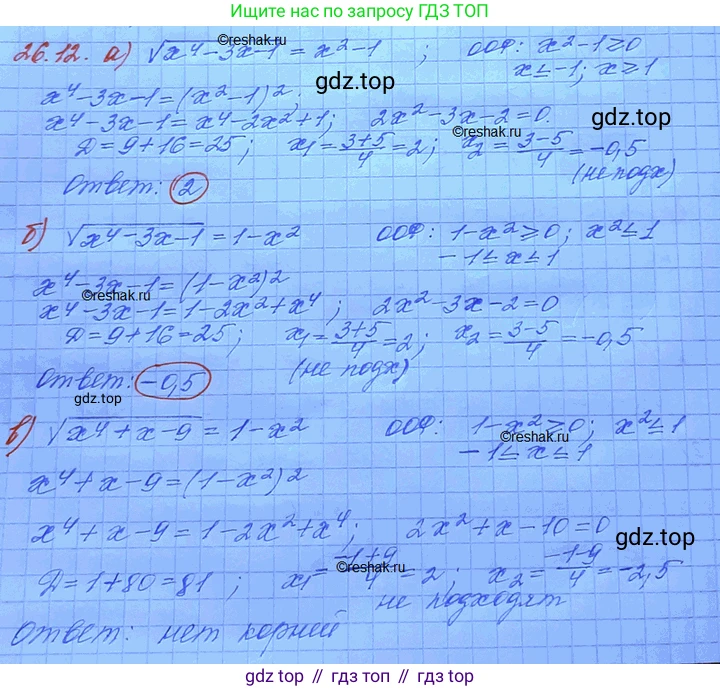 Ищите нас по запросу ГДЗ ТОП
26.12. а) √x⁴-3x-1 = x²-1 ; ООФ: x²-1≥0
x≤-1; x≥1
©reshak.ru
gdz.top
x⁴-3x-1=(x²-1)²;
x⁴-3x-1=x⁴-2x²+1; 2x²-3x-2=0.
gdz.top
©reshak.ru
Д=9+16=25; x₁=(3+5)/4=2; x₂=(3-5)/4=-0,5
(не подх)
Ответ: 2
б) √x⁴-3x-1 = 1-x² ООФ: 1-x²≥0; x²≤1
-1≤x≤1
x⁴-3x-1=(1-x²)²
©reshak.ru
x⁴-3x-1=1-2x²+x⁴ ; 2x²-3x-2=0
Д=9+16=25; x₁=(3+5)/4=2; x₂=(3-5)/4=-0,5
(не подх)
Ответ: -0,5
gdz.top
в) √x⁴+x-9 = 1-x² ООФ: 1-x²≥0; x²≤1
©reshak.ru
-1≤x≤1
x⁴+x-9=(1-x²)²
x⁴+x-9=1-2x²+x⁴; 2x²+x-10=0
gdz.top
Д=1+80=81 ; x₁=(-1+9)/4=2 ; x₂=(-1-9)/4=-2,5
не подходят
Ответ: нет корней
gdz.top // гдз.топ // gdz.top